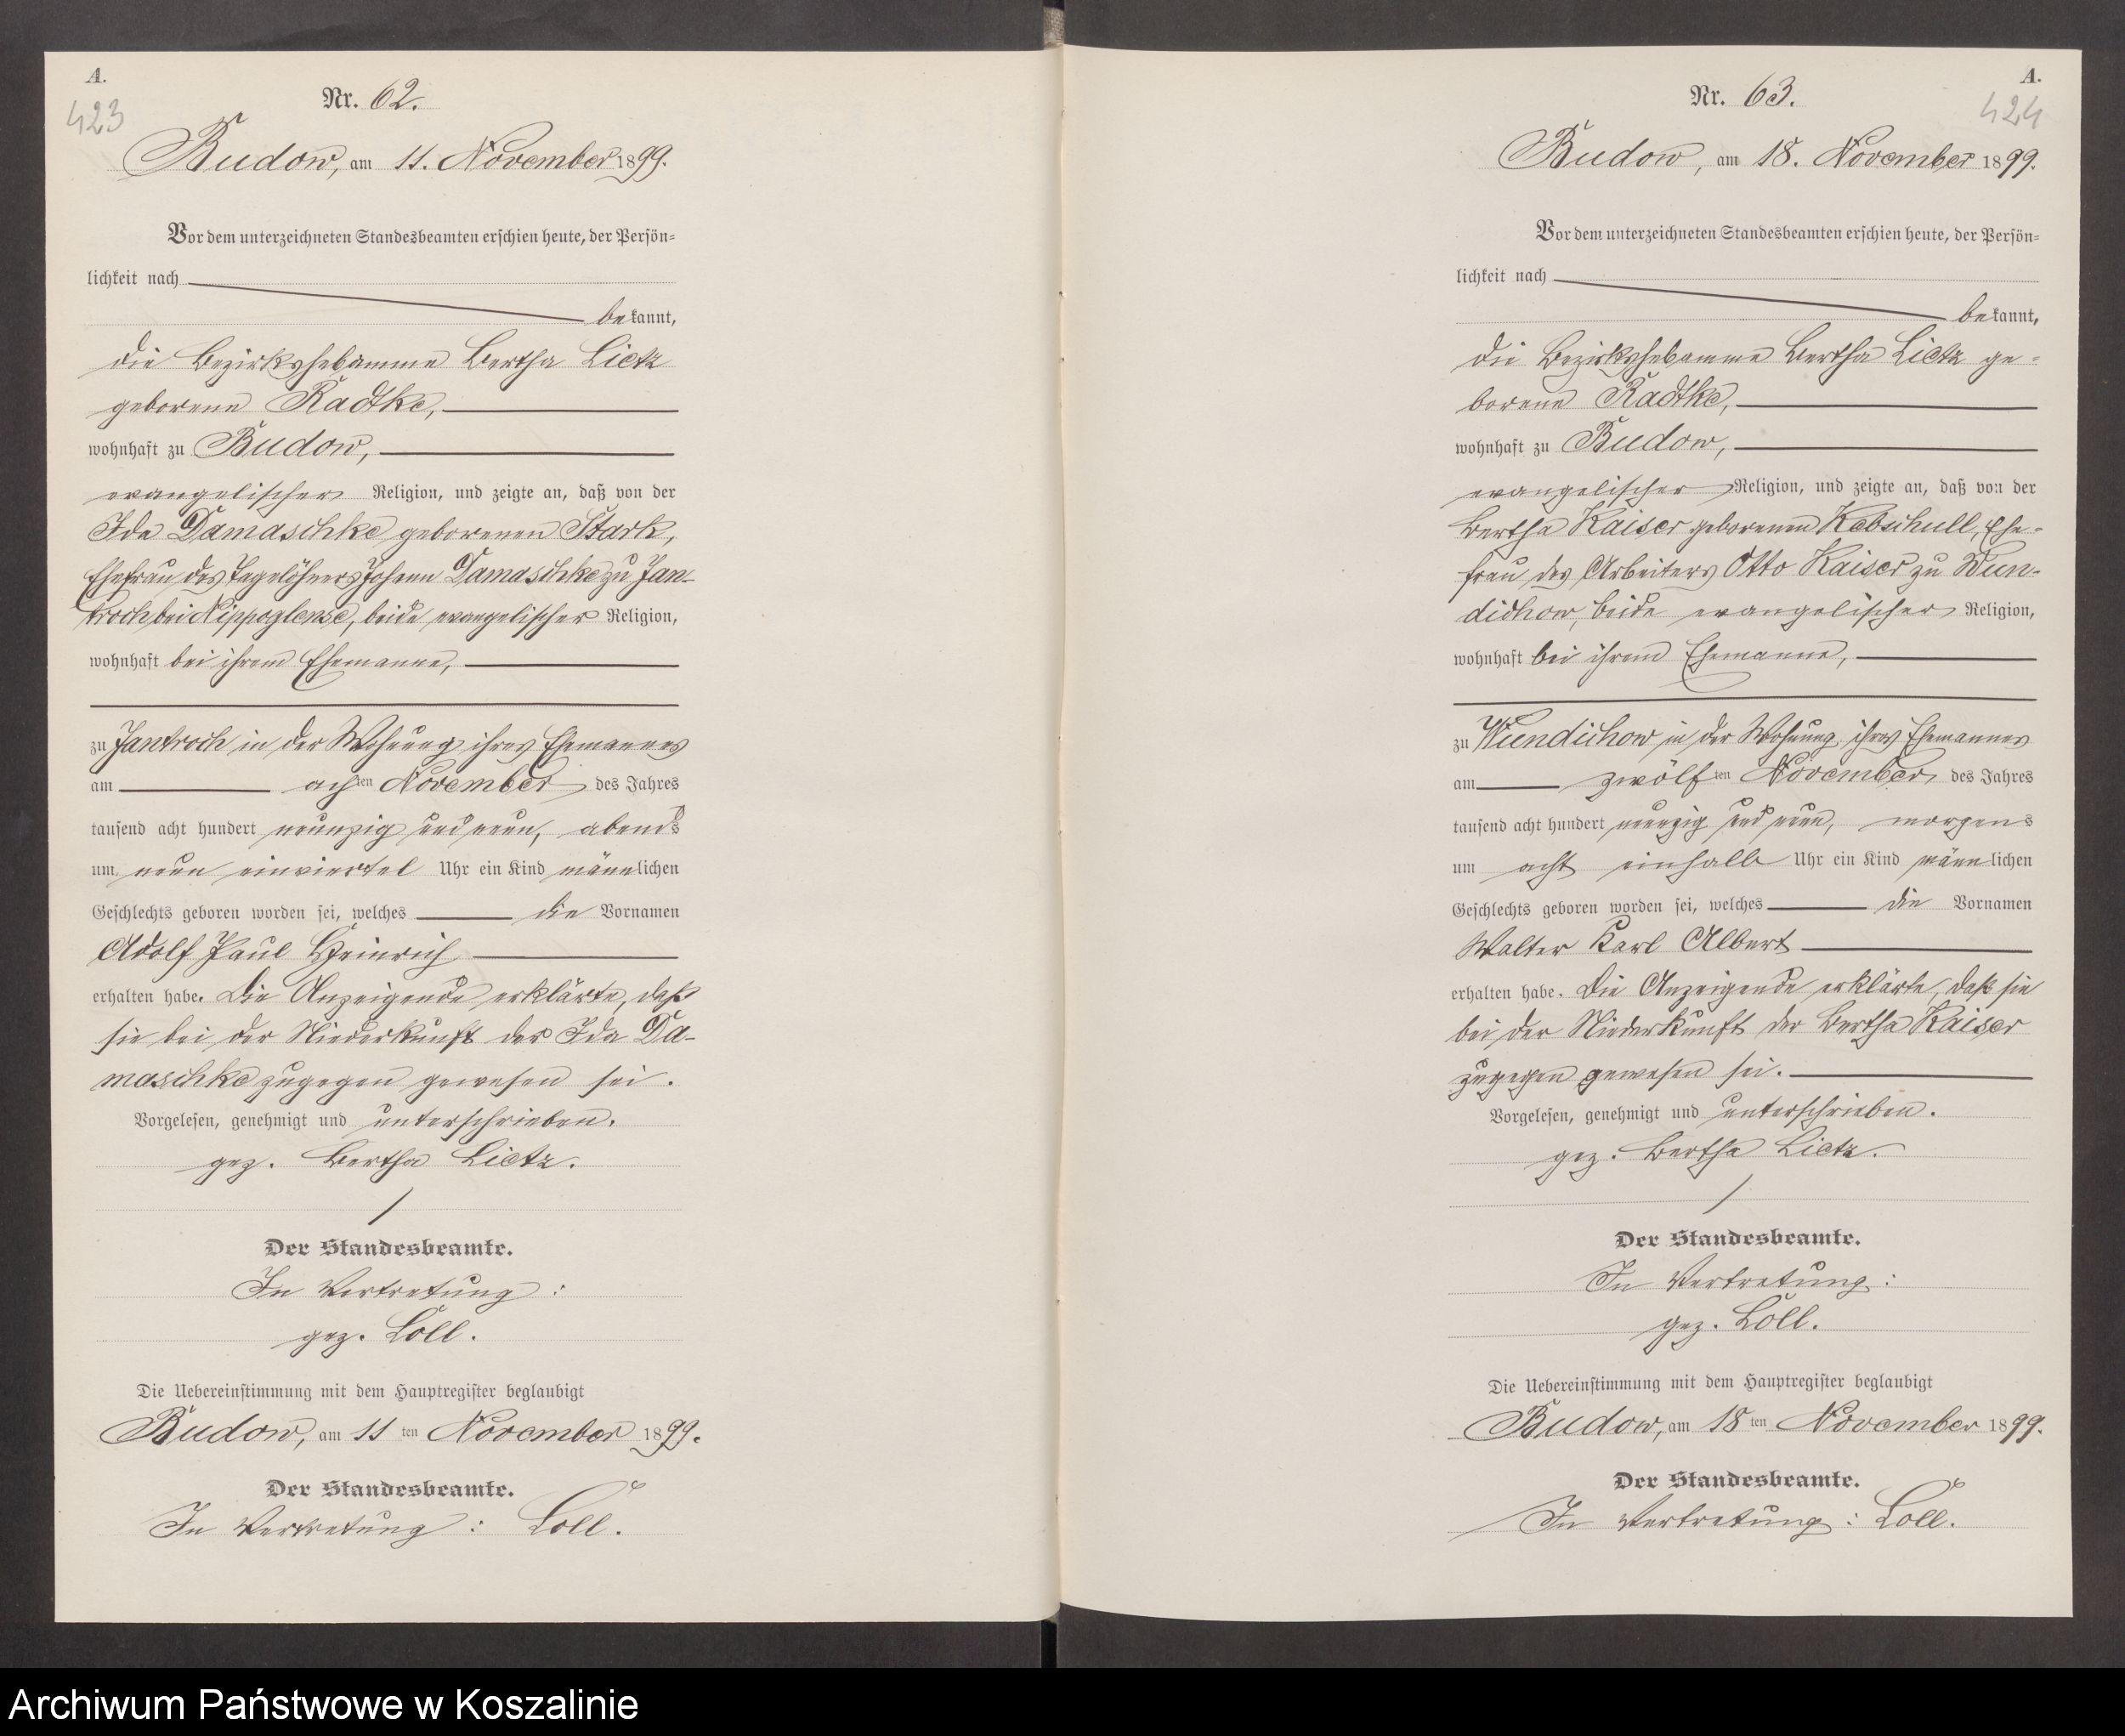 A.
423
Nr. 62.
Budow, am 11. November 1899.
Vor dem unterzeichneten Standesbeamten erschien heute, der Persön=
lichkeit nach
bekannt,
die Bezirkshebamme Bertha Lietz
geborene Radtke,
wohnhaft zu Budow,
evangelischer Religion, und zeigte an, daß von der
Ida Damaschke geborenen Stark,
Ehefrau des Tagelöhners Johann Damaschke zu Jan-
troch bei Nippoglense, beide evangelischer Religion,
wohnhaft bei ihrem Ehemanne,
zu Jantroch in der Wohnung ihres Ehemannes
am achten November des Jahres
tausend acht hundert neunzig und neun, abends
um neun einviertel Uhr ein Kind männlichen
Geschlechts geboren worden sei, welches die Vornamen
Adolf Paul Heinrich
erhalten habe. Die Anzeigende erklärte, daß
sie bei der Niederkunft der Ida Da-
maschke zugegen gewesen sei.
Vorgelesen, genehmigt und unterschrieben.
gez. Bertha Lietz.
Der Standesbeamte.
In Vertretung:
gez. Loll.
Die Uebereinstimmung mit dem Hauptregister beglaubigt
Budow, am 11 ten November 1899.
Der Standesbeamte.
In Vertretung: Loll.
A.
424
Nr. 63.
Budow, am 18. November 1899.
Vor dem unterzeichneten Standesbeamten erschien heute, der Persön=
lichkeit nach
bekannt,
die Bezirkshebamme Bertha Lietz ge=
borene Radtke,
wohnhaft zu Budow,
evangelischer Religion, und zeigte an, daß von der
Bertha Kaiser geborenen Kebschull, Ehe=
frau des Arbeiters Otto Kaiser zu Wun-
dichow, beide evangelischer Religion,
wohnhaft bei ihrem Ehemanne,
zu Wundichow in der Wohnung ihres Ehemannes
am zwölften November des Jahres
tausend acht hundert neunzig und neun, morgens
um acht einhalb Uhr ein Kind männlichen
Geschlechts geboren worden sei, welches die Vornamen
Walter Karl Albert
erhalten habe. Die Anzeigende erklärte, daß sie
bei der Niederkunft der Bertha Kaiser
zugegen gewesen sei.
Vorgelesen, genehmigt und unterschrieben.
gez. Bertha Lietz.
Der Standesbeamte.
In Vertretung:
gez. Loll.
Die Uebereinstimmung mit dem Hauptregister beglaubigt
Budow, am 18 ten November 1899.
Der Standesbeamte.
In Vertretung: Loll.
Archiwum Państwowe w Koszalinie